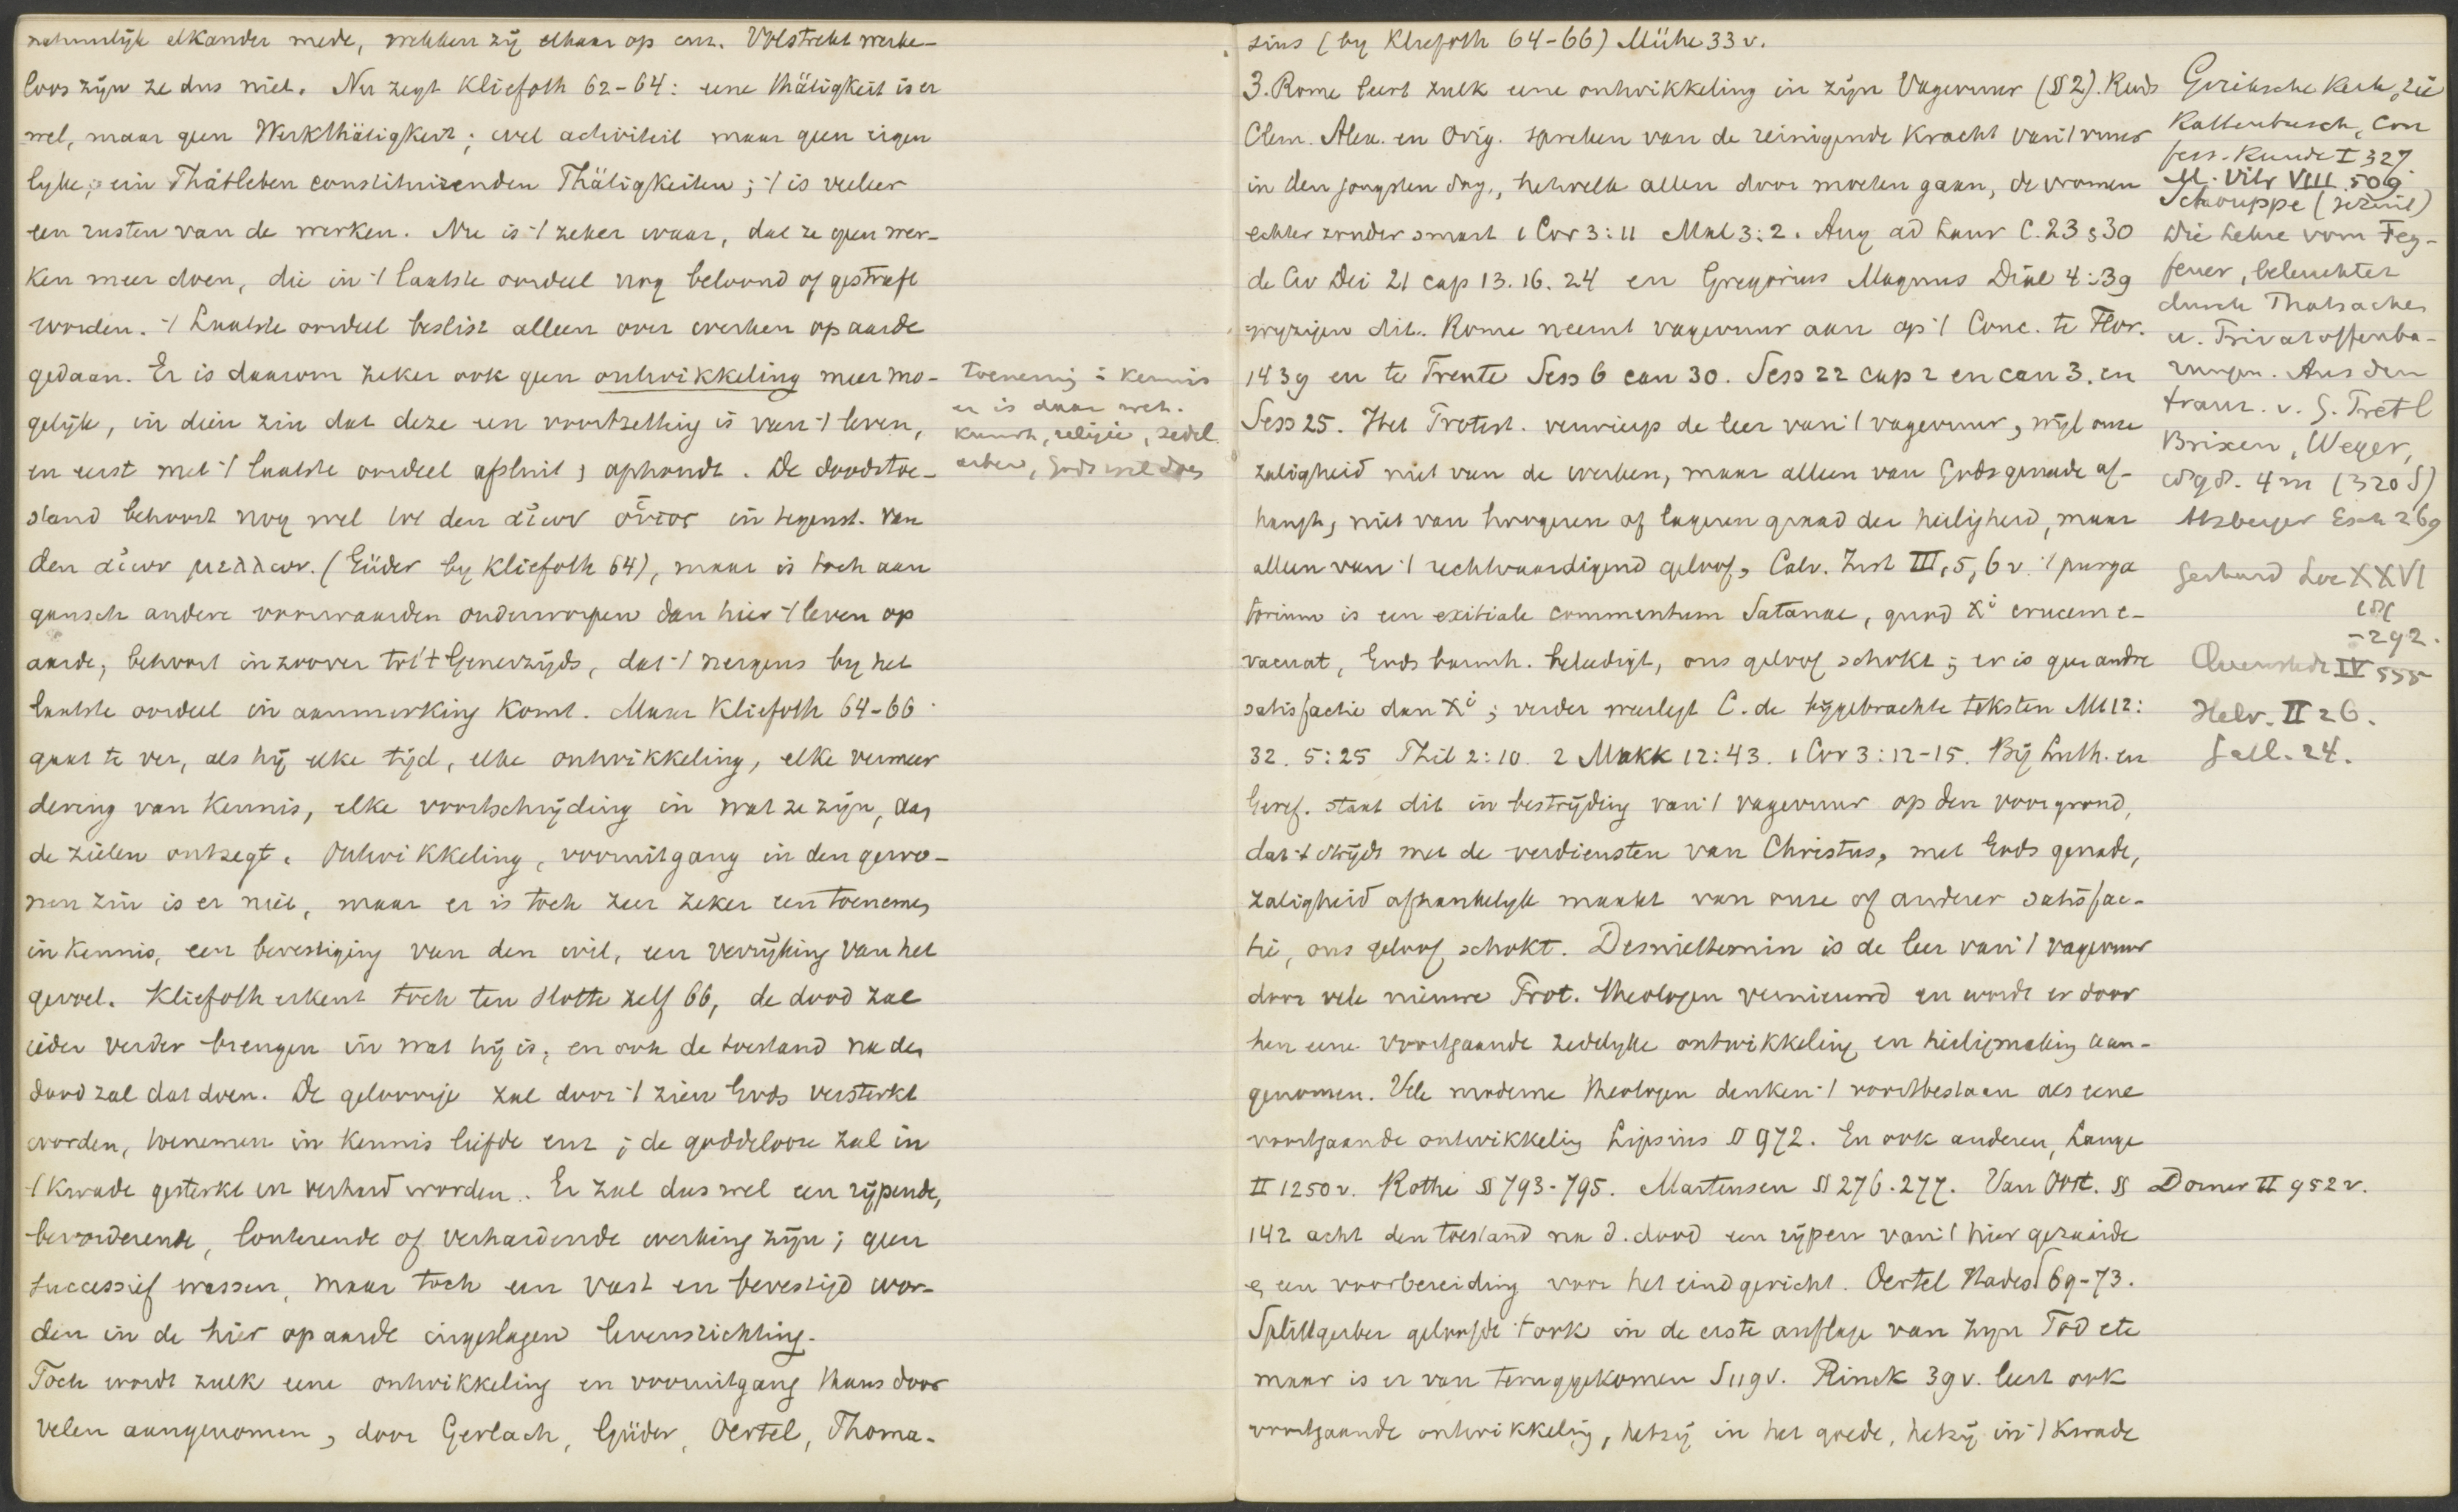 natuurlijk elkander mede, wekken zij elkaar op enz. Volstrekt werke-
loos zijn ze dus niet. Nu zegt Kliefoth 62-64: eene Thätigkeit is er
wel, maar geen Werkthätigkeit; wel activiteit maar geen eigen
lyke, ein Thatleben constituirenden Thätigkeiten; 't is veeleer
een rusten van de werken. Nu is 't zeker waar, dat ze geen wer-
ken meer doen, die in 't laatste oordeel nog beloond of gestraft
worden. 't Laatste oordeel beslist alleen over werken op aarde
gedaan. Er is daarom zeker ook geen ontwikkeling meer mo-
gelijk, in dien zin dat deze een voortzetting is van 't leven,
en eerst met 't laatste oordeel afsluit & ophoudt. De doodstoe-
stand behoort nog wel tot den αἰων οὗτος in tegenst. van
den αἰων μελλων. (Güder by Kliefoth 64), maar is toch aan
gansch andere voorwaarden onderworpen dan hier 't leven op
aarde, behoort in zoover tot 't Generzijds, dat 't nergens by het
laatste oordeel in aanmerking komt. Maar Kliefoth 64-66
gaat te ver, als hij elke tijd, elke ontwikkeling, elke vermeer
dering van kennis, elke voortschrijding in wat ze zijn, aan
de zielen ontzegt. Ontwikkeling, vooruitgang in den gewo-
nen zin is er niet, maar er is toch zeer zeker een toenemen
in kennis, een bevestiging van den wil, een verrijking van het
gevoel. Kliefoth erkent toch ten slotte zelf 66, de dood zal
ieder verder brengen in wat hij is, en ook de toestand na den
dood zal dat doen. De geloovige zal door 't zien Gods versterkt
worden, toenemen in kennis liefde enz; de goddelooze zal in
't kwade gesterkt en verhard worden. Er zal dus wel een rijpende,
bevorderende, louterende of verhardende werking zijn; geen
successief wassen, maar toch een vast en bevestigd wor-
den in de hier op aarde ingeslagen levensrichting.
Toch wordt zulk eene ontwikkeling en vooruitgang thans door
velen aangenomen, door Gerlach, Güder, Oertel, Thoma-
toeneming in kennis
er is daar wet.
kunst, religie, zedel.
arbeid, Gods wil doen
sius (by Kliefoth 64-66) Mühe 33 v.
3. Rome leert zulk eene ontwikkeling in zijn Vagevuur (§ 2). Reeds
Clem. Alex. en Orig. spreken van de reinigende kracht van 't vuur
in den jongsten dag, hetwelk allen door moeten gaan, de vromen
echter zonder smart 1 Cor 3:11 Mal 3:2. Aug ad Laur C. 23 & 30
de Civ Dei 21 cap 13. 16. 24 en Gregorius Magnus Dial 4:39
wyzigen dit. Rome neemt vagevuur aan op 't Conc. te Flor.
1439 en te Trente Sess 6 can 30. Sess 22 cap 2 en can 3. en
Sess 25. Het Protest. verwierp de leer van 't vagevuur, wijl onze
zaligheid niet van de werken, maar alleen van Gods genade af-
hangt, niet van hoogeren of lageren graad der heiligheid, maar
alleen van 't rechtvaardigend geloof, Calv. Inst III, 5, 6 v. 't purga
torium is een exitiale commentum Satanae, quod Xi crucem e-
vacuat, Gods barmh. beleedigt, ons geloof schokt; er is geen andre
satisfactie dan Xi; verder weerlegt C. de bijgebrachte teksten Mt 12:
32. 5:25 Phil 2:10. 2 Makk 12:43. 1 Cor 3:12-15. Bij Luth. en
Geref. staat dit in bestrijding van 't vagevuur op den voorgrond,
dat 't strijdt met de verdiensten van Christus, met Gods genade,
zaligheid afhankelyk maakt van onze of anderer satisfac-
tie, ons geloof schokt. Desniettemin is de leer van 't vagevuur
door vele nieuwe Prot. theologen vernieuwd en wordt er door
hen eene voortgaande zedelyke ontwikkeling en heiligmaking aan-
genomen. Vele moderne theologen denken 't voortbestaan als eene
voortgaande ontwikkeling Lipsius § 972. En ook anderen, Lange
II 1250 v. Rothe § 793-795. Martensen § 276. 277. Van Oost. §
142 acht den toestand na d. dood een rijpen van 't hier gezaaide
& een voorbereiding voor het eindgericht. Oertel Hades 69-73.
Splittgerber geloofde 't ook in de erste auflage van zyn Tod etc
maar is er van teruggekomen S 119 v. Rinck 39 v. leert ook
voortgaande ontwikkeling, hetzij in het goede, hetzij in 't kwade
Grieksche kerk, zie
Kattenbusch, Con
fess. Kunde I 327
M. Vilr VIII 509
Schouppe (Jezuit)
Die Lehre vom Feg-
feuer, beleuchtet
durch Thatsachen
u. Privatoffenba-
rungen. Aus dem
franz. v. G. Pretl
Brixen, Weger,
1898. 4 m (320 S)
Atzberger Esch 269
Gerhard Loc XXVI
181
-292.
Quenstedt IV 555
Helv. II 26.
Gall. 24.
Dorner II 952 v.